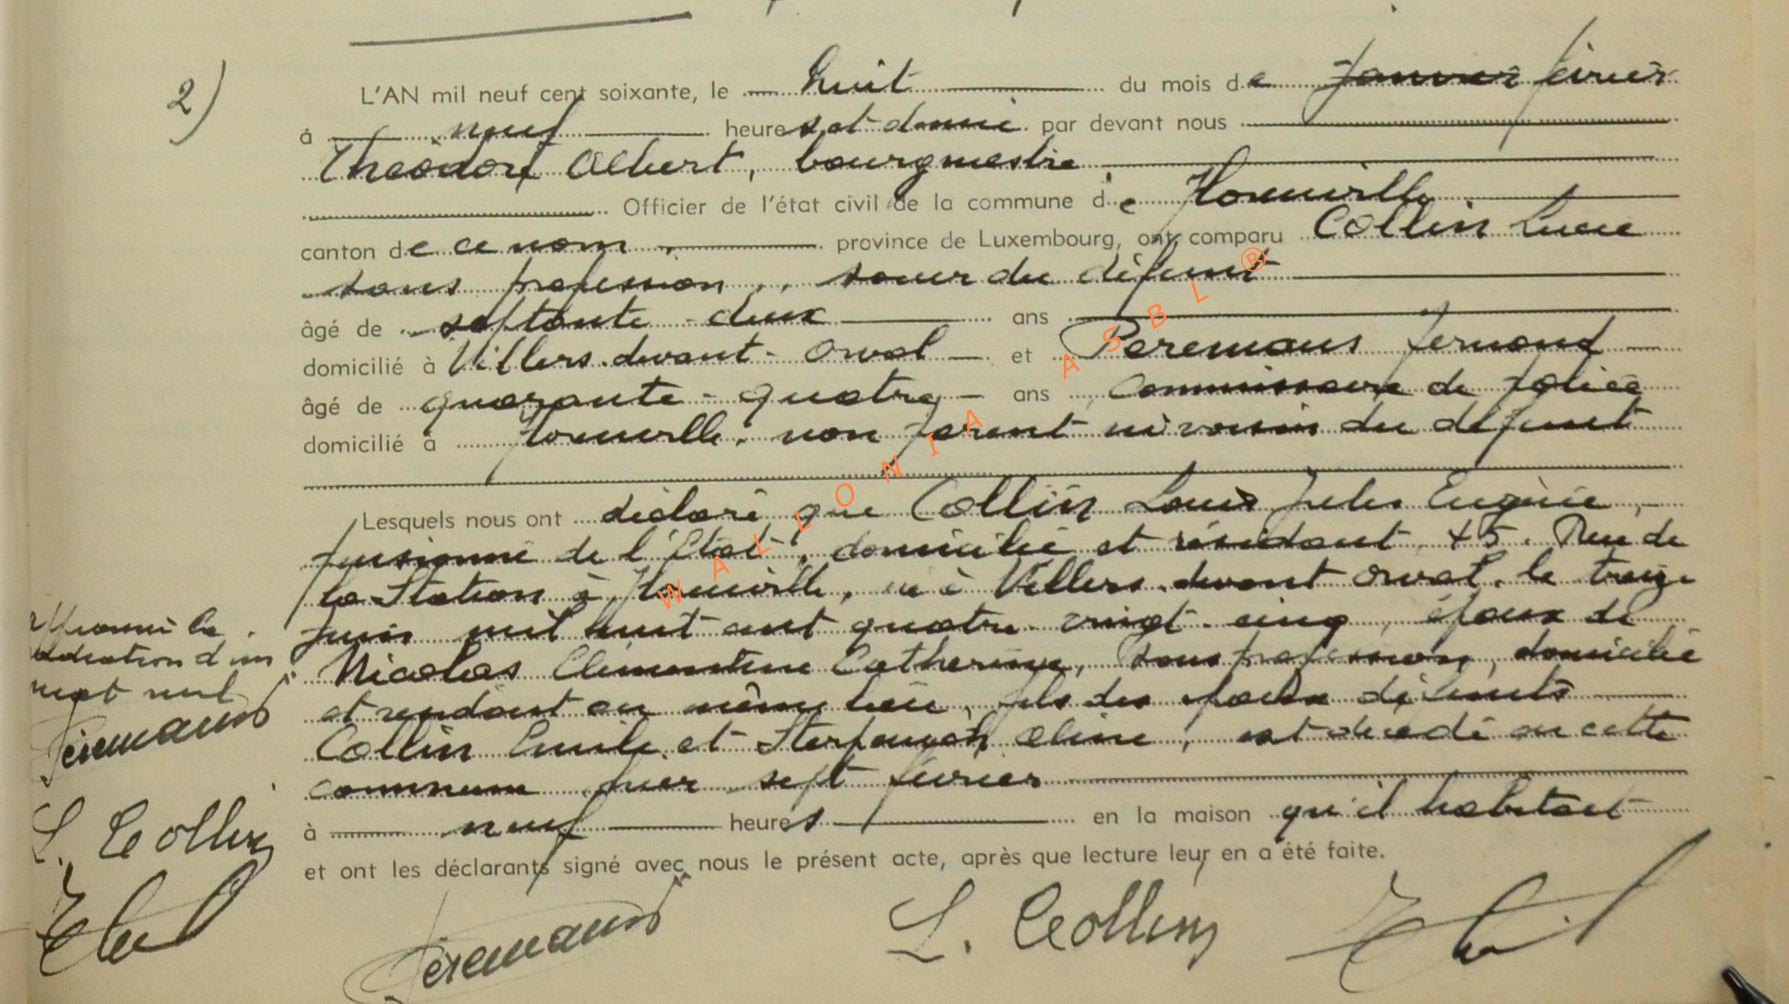 2)
L'AN mil neuf cent soixante, le huit du mois de janvier février
à neuf heures et demie par devant nous
Théodore Albert, bourgmestre
Officier de l'état civil de la commune de Florenville
canton de ce nom, province de Luxembourg, ont comparu Collin Lucie
sans profession, soeur du défunt
âgé de septante-deux ans
domicilié à Villers-devant-Orval et Peremans Fernand
âgé de quarante-quatre ans commissaire de police
domicilié à Florenville, non parent ni voisin du défunt
Lesquels nous ont déclaré que Collin Louis Jules Eugène,
pensionné de l'Etat, domicilié et résidant, 45, Rue de
la Station à Florenville, né à Villers-devant-Orval, le treize
juin mil huit cent quatre-vingt-cinq, époux de
Nicolas Clémentine Catherine, sans profession, domicilié
et résidant au même lieu, fils des époux défunts
Collin Emile et Aline, est décédé en cette
commune hier sept février
à neuf heures en la maison qu'il habitait
et ont les déclarants signé avec nous le présent acte, après que lecture leur en a été faite.
Approuvé la
d'un
mot nul
Peremans
L. Collin
Peremans L. Collin
WALLONIA ASBL ®